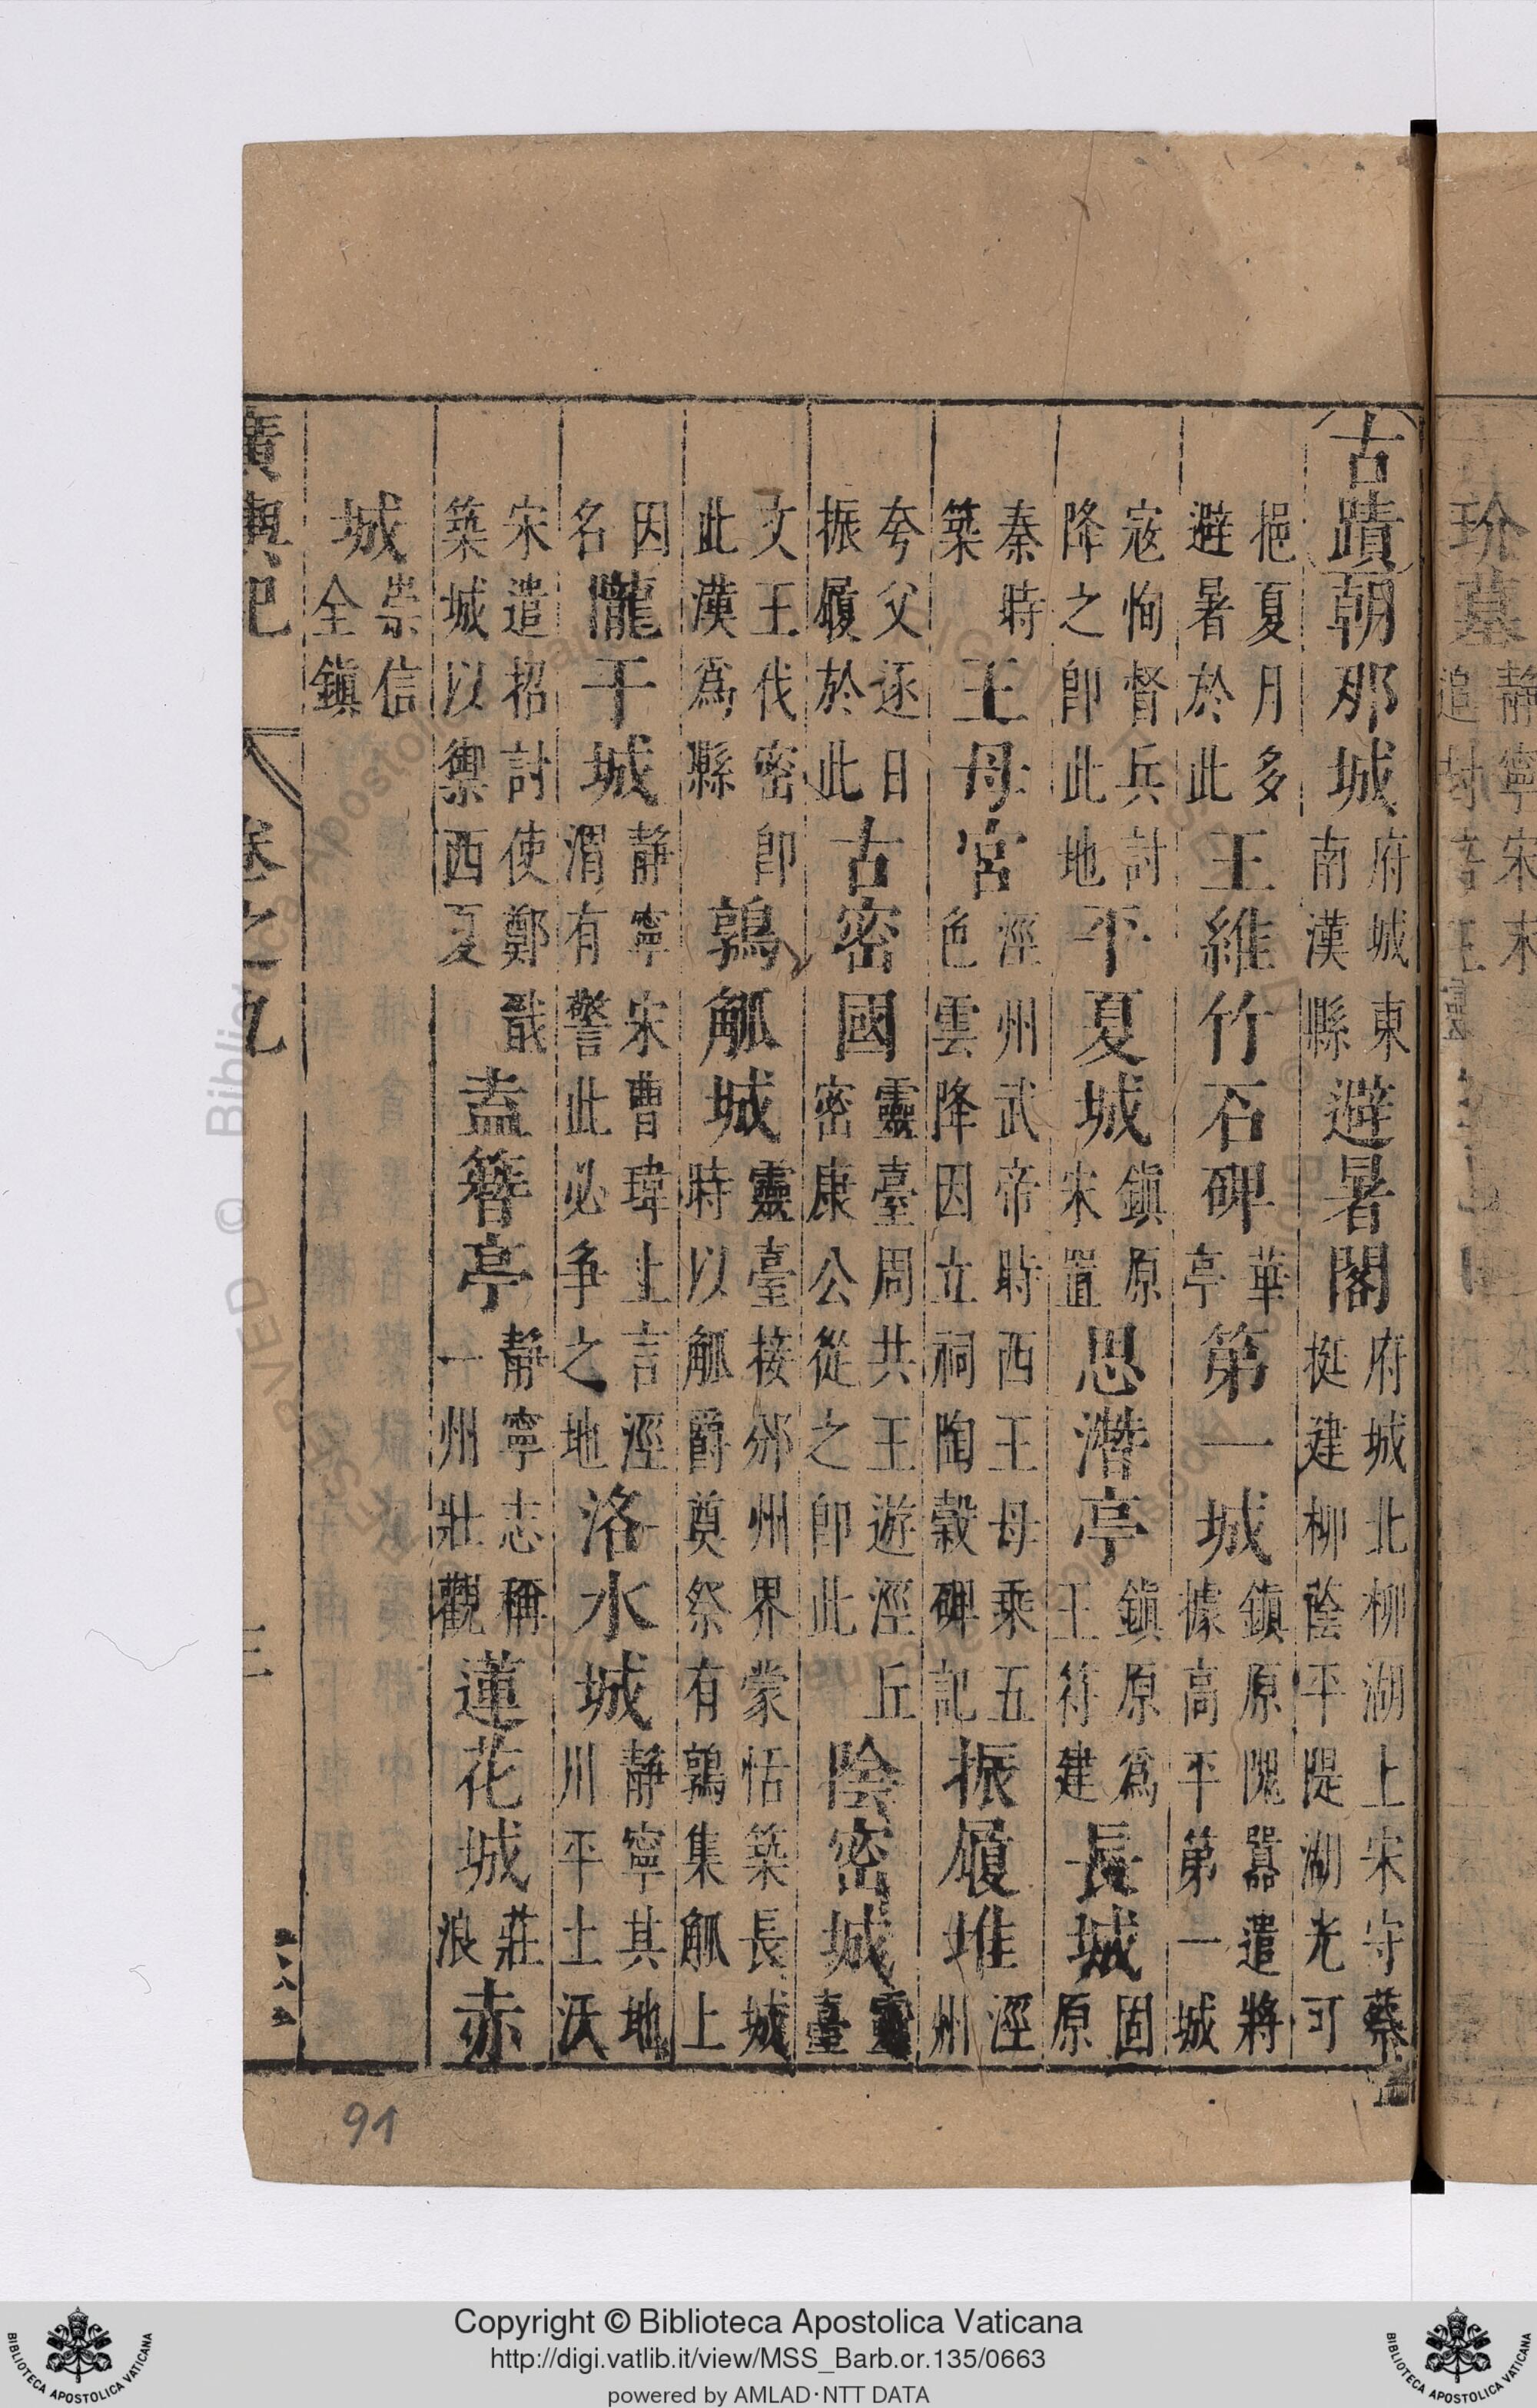 玠墓靜寧宋
古蹟朝那城府城東南漢縣避暑閣府城北柳湖上宋守蔡挺建柳蔭平隄湖光可
挹夏月多避暑於此王維竹石碑華亭第一城鎮原隗囂遣將據高平第一城
寇恂督兵討降之卽此地平夏城鎮原宋置思潛亭鎮原爲王符建長城固原
秦時築王母宮涇州武帝時西王母乘五色雲降因立祠陶榖碑記振履堆涇州
夸父逐日振履於此古密國靈臺周共王遊涇丘密康公從之卽此陰密城靈臺
文王伐密卽此漢爲縣鶉觚城靈臺接邠州界蒙恬築長城時以觚爵奠祭有鶉集觚上
因名隴干城靜寧宋曹瑋上言涇渭有警此必爭之地洛水城靜寧其地川平土沃
宋遣招討使鄭戩築城以禦西夏盍簪亭靜寧志稱一州壯觀蓮花城莊浪赤
城崇信全鎮
廣輿記 卷之九 三
91
Copyright © Biblioteca Apostolica Vaticana
http://digi.vatlib.it/view/MSS_Barb.or.135/0663
powered by AMLAD·NTT DATA
BIBLIOTECA APOSTOLICA VATICANA
BIBLIOTECA APOSTOLICA VATICANA